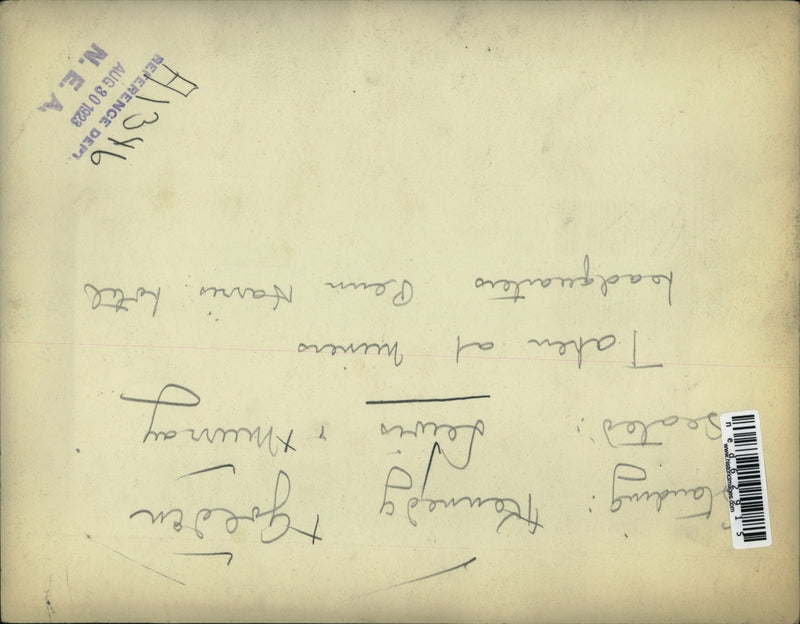 Standing: Kennedy + Golden
Seated: Lewis + Murray
Taken at miners
headquarters Penn Harris hotel
REFERENCE DEPT.
AUG 30 1923
N. E. A.
A1346
www.historicimages.com
ned62915